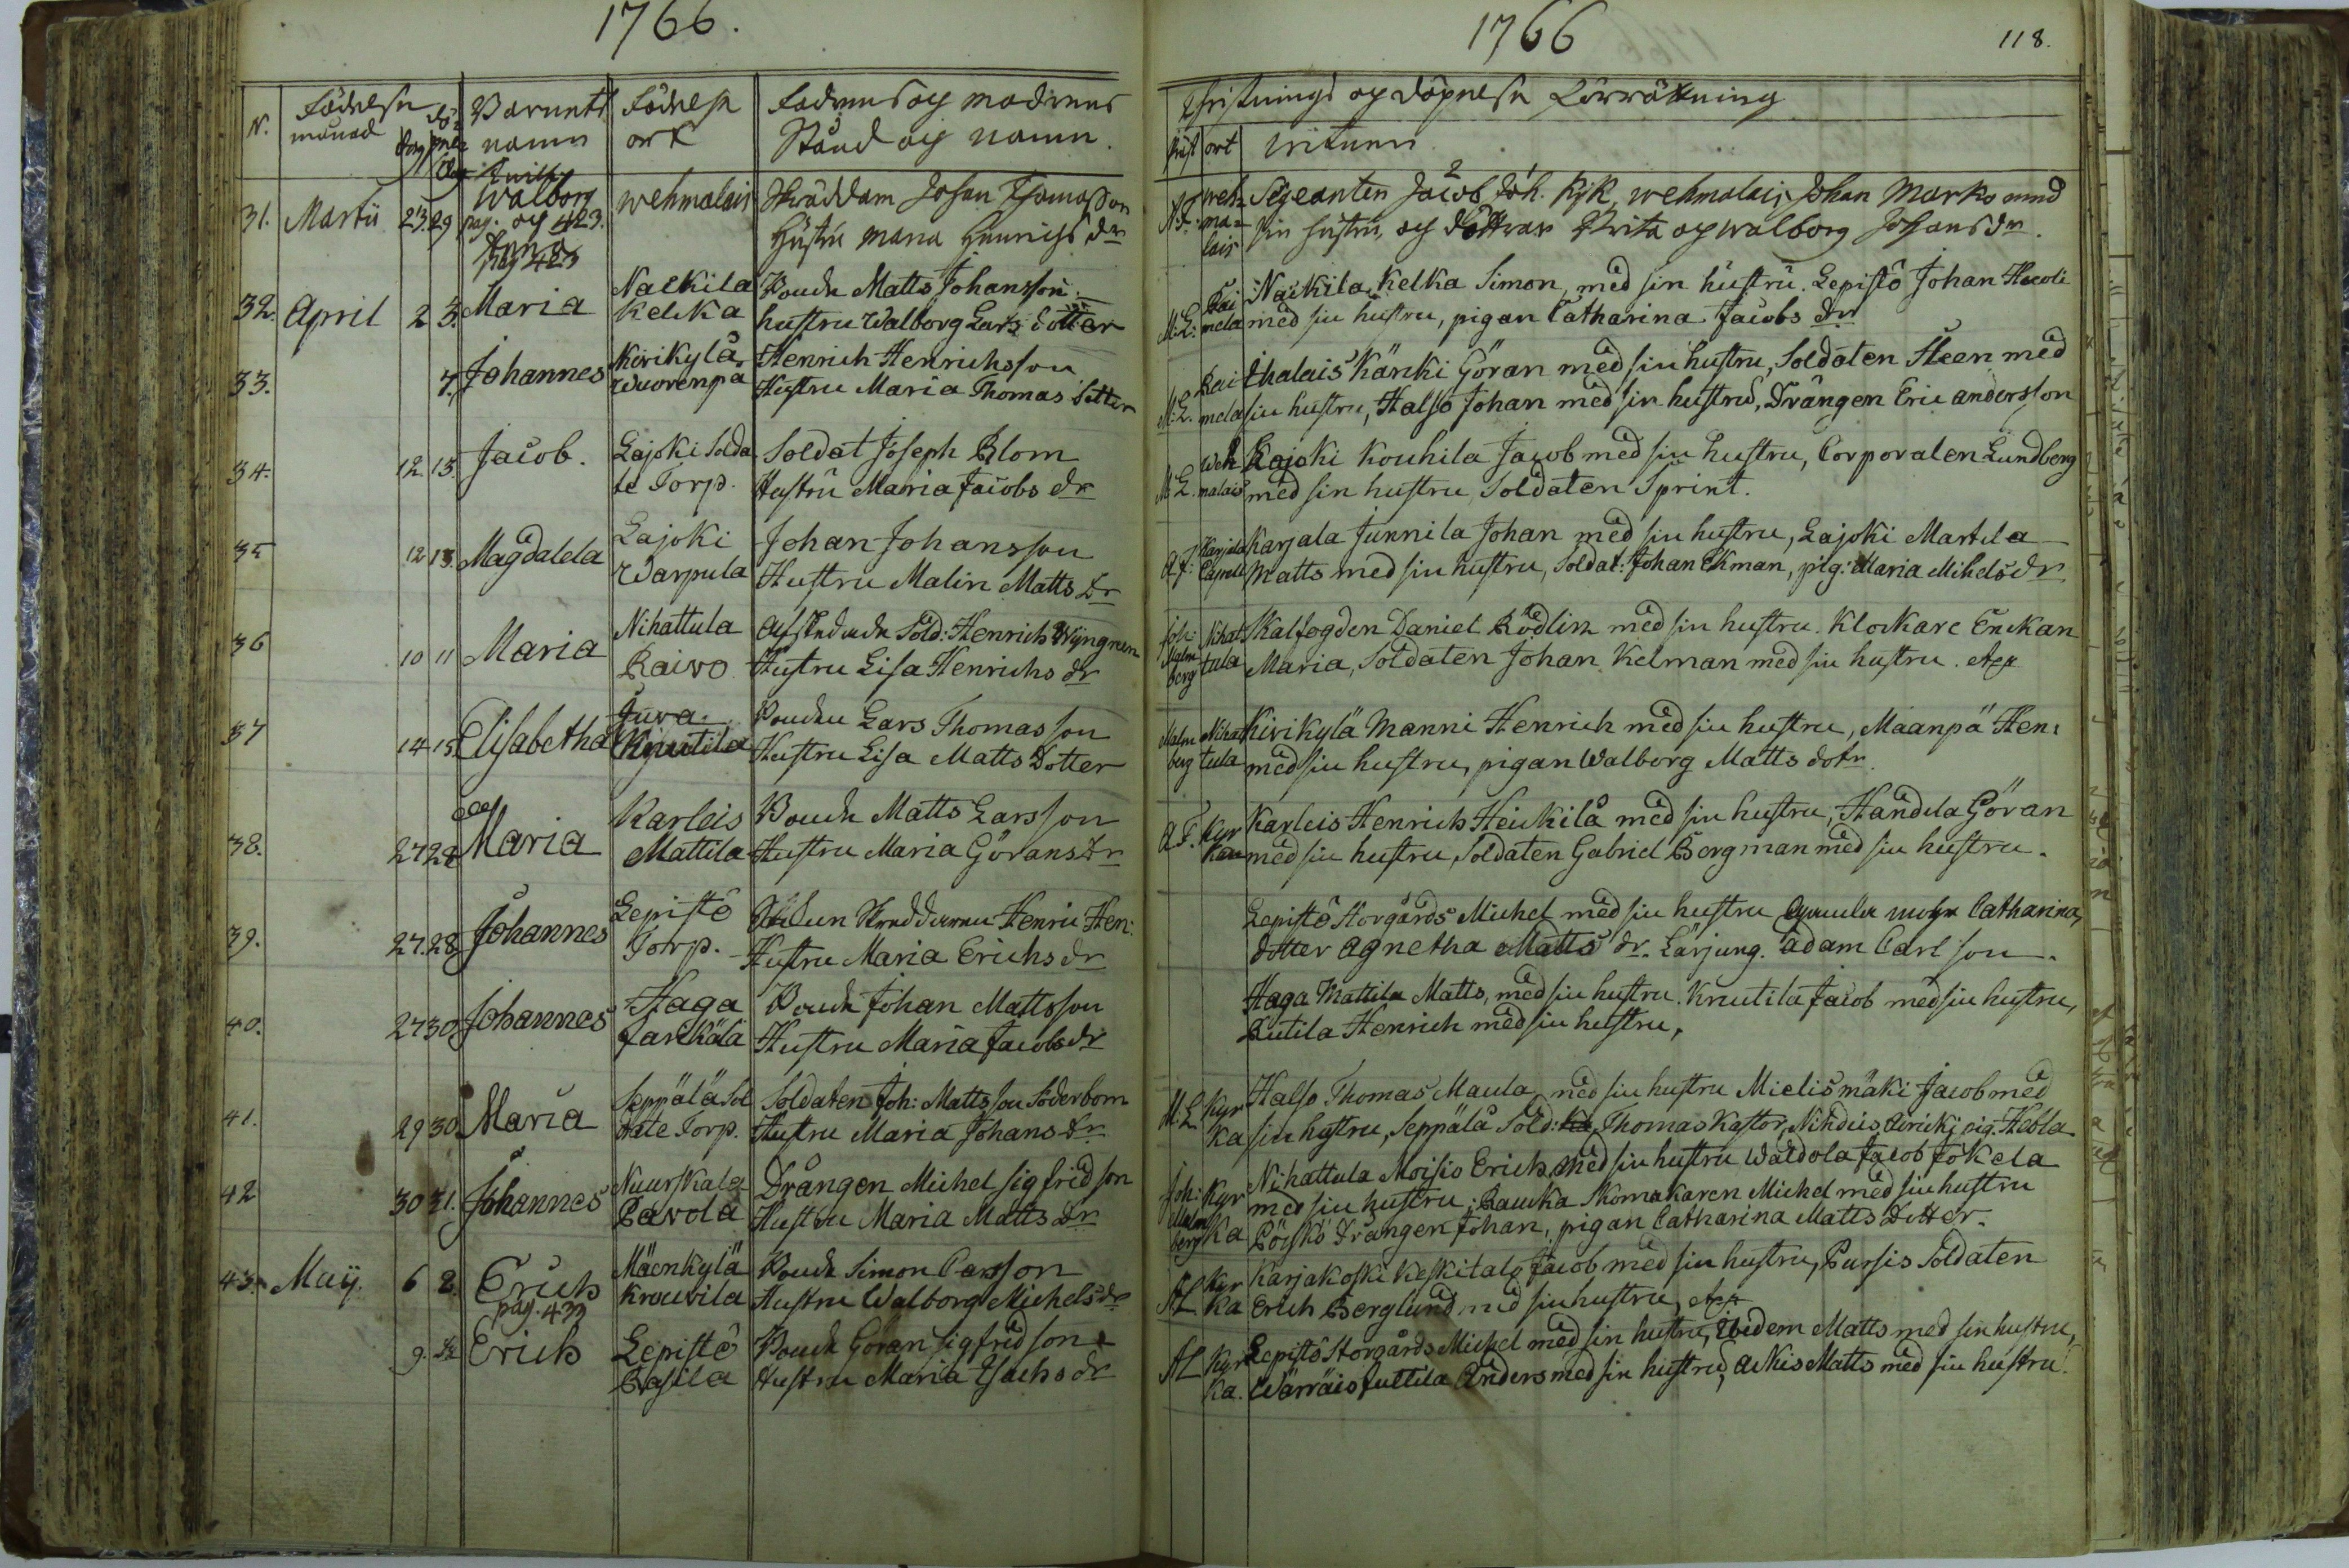 1766.
N.
Födelse
månad
dag
Barnets
namn
Födelse
ort
Fadrens och modrens
Stånd och namn.
31. Martii 23. 29
Walborg
pag. och 423.
Anna
pag 423
wehmalais
Skräddaren Johan Thomasson
Hustru Maria Henrichs dr
32. April 2 3. Maria
Nalkila
Kelkka
Bonde Matts Johansson
hustru Walborg Lars dotter
33. 7. Johannes
Kirikylä
Wuorenpä
Henrich Henrichsson
Hustru Maria Thomas dotter
34. 12. 13. Jacob.
Lajoki Solda
te Torp.
Soldat Joseph Blom
Hustru Maria Jacobs dr
35 12 13. Magdalela
Lajoki
Warpula
Johan Johansson
Hustru Malin Matts Dr
36 10 11 Maria
Nihattula
Raiwo
Afskedade Sold: Henrich Wyngren
Hustru Lisa Henrichs dr
37 14 15. Elisabetha
Juva.
Knutila
Bonden Lars Thomasson
Hustru Lisa Matts Dotter
38. 27 28 Maria
Karleis
Mattila
Bonde Matts Larsson
Hustru Maria Görans Dr
39. 27. 28. Johannes
Lepistö
Torp.
Skreddaren Henric Hen:
Hustru Maria Erichs dr
40. 27 30 Johannes
Haga
Jarckälä
Bonde Johan Mattsson
Hustru Maria Jacobs dr
41. 29 30. Maria
Seppälä Sol
date Torp.
Soldaten Joh: Mattsson Söderbom
Hustru Maria Johans Dr.
42 30 31. Johannes
Nuurskala
Pavola
Drängen Michel Sigfridson
Hustru Maria Matts Dr
43. Maij. 6 8. Erich
pag. 433
Mäenkylä
Krouvila
Bonde Simon Carsson
Hustru Walborg Michels dr
9. Erich
Lepistö
Pasila
Bonde Göran Sigfridson
Hustru Maria Isachs dr
1766
118.
Christnings och döpnelse Förrättning
Präst ort witnen
A.F. weh=
ma=
lais
Sergeanten Jacob Joh. Kjk, wehmalais Johan Marks med
sin hustru, och döttrar Brita och walborg Johans dr.
M:L: Rai
mela
Naikila, Kelka Simon, med sin hustru. Lepistö Johan
med sin hustru, pigan Catharina Jacobs dr
M:L. Rai
mela
Ihalais Känki Göran med sin hustru, Soldaten Steen med
sin hustru, Halso Johan med sin hustru, Drängen Eric andersson
M: L. Weh
malais
Lajoki Kouhila Jacob med sin hustru, Corporalen Lundberg
med sin hustru, Soldaten Sprint.
A.F: Karjala
Capell
Karjala Junnila Johan med sin hustru, Lajoki Martila
Matts med sin hustru, Soldat: Johan Ekman, pig: Maria Mihels dr
Joh:
Malm
berg
Nihat
tula
Skalfogden Daniel Rödlin med sin hustru. Klockare Enckan
Maria, Soldaten Johan Kelman med sin hustru.
Malm
berg
Nihat
tula
Kirikylä Manni Henrich med sin hustru, Maanpä Hen:
med sin hustru, pigan Walborg Matts dotr.
A.F. Kyr
kan
Karleis Henrich Heickilä med sin hustru, Handila Göran
med sin hustru, Soldaten Gabriel Bergman med sin hustru.
Lepistö Storgårds Michel med sin hustru Catharina,
dotter Agnetha Matts dr. Lärjung. Adam Carlson.
Haga Mattila Matts, med sin hustru. Knutila Jacob med sin hustru,
Rutila Henrich med sin hustru,
M:L. Kyr
ka
Halso Thomas Maula, med sin hustru Mielismäki Jacob med
sin hustru, Seppälä Sold: Thomas Kastor, pig. Hebla
Joh:
Malm
berg
Kyr
ka
Nihattula Moisio Erich, med sin hustru Waldola Jacob Jokela
med sin hustru; Raucka Skomakaren Michel med sin hustru
Pöyskö Drängen Johan, pigan Catharina Matts Dotter.
AL Kyr
ka
Karjakoski Keskitalo Jacob med sin hustru, Pursis Soldaten
Erich Berglund med sin hustru,
AL Kyr
ka.
Lepistö Storgårds Michel med sin hustru, Ibidem Matts med sin hustru,
Wärräis Juttila Anders med sin hustru, Ackis Matts med sin hustru.